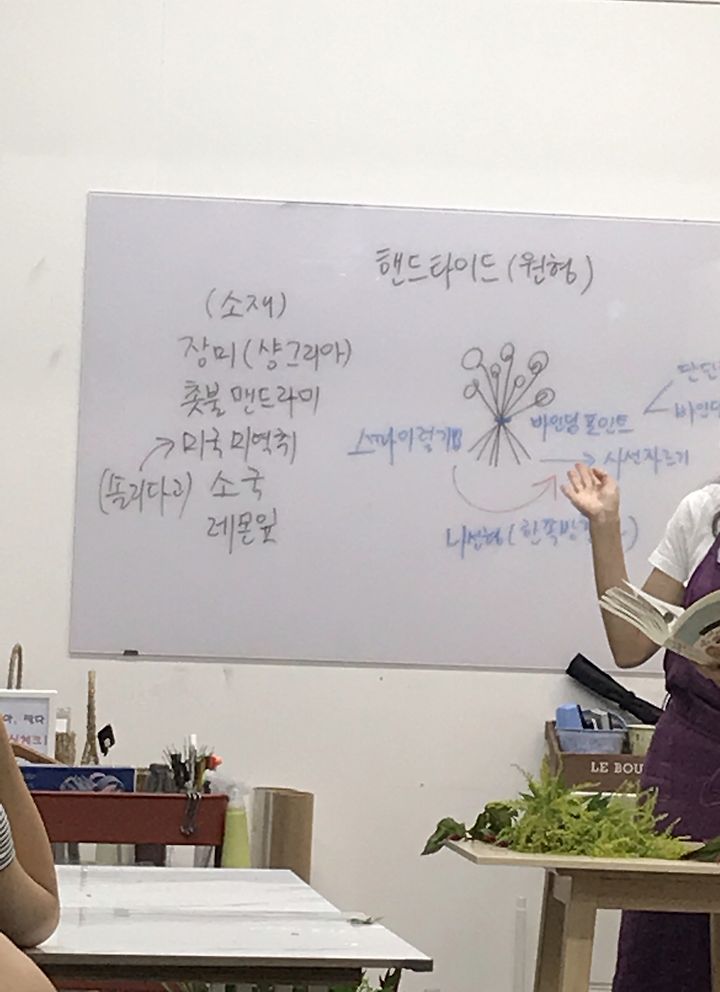 핸드타이드(원형)
(소재)
장미(샹그리아)
촛불맨드라미
미국미역취
(솔리다고) 소국
레몬잎
스파이럴기법
바인딩포인트
사선자르기
나선형(한쪽방
단단
바인딩
LE BOU